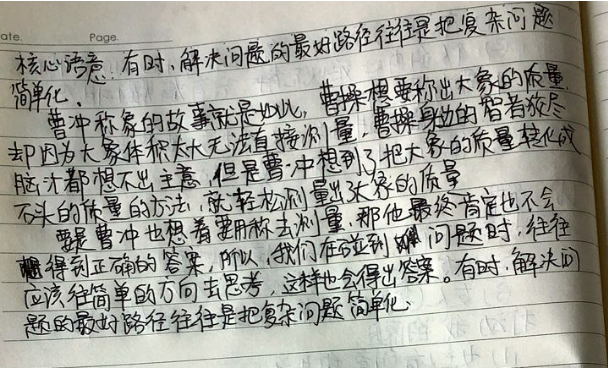 ate. Page.
核心语意：有时，解决问题的最好路径往往是把复杂问题
简单化。
曹冲称象的故事就是如此，曹操想要称出大象的质量，
却因为大象体积太大无法直接测量，曹操身边的智者绞尽
脑汁都想不出主意，但是曹冲想到了把大象的质量转化成
石头的质量的方法，就轻松测量出大象的质量
要是曹冲也想着要用称去测量，那他最终肯定也不会
得到正确的答案，所以，我们在碰到 问题时，往往
应该往简单的方向去思考，这样也会得出答案。有时，解决问
题的最好路径往往是把复杂问题简单化.